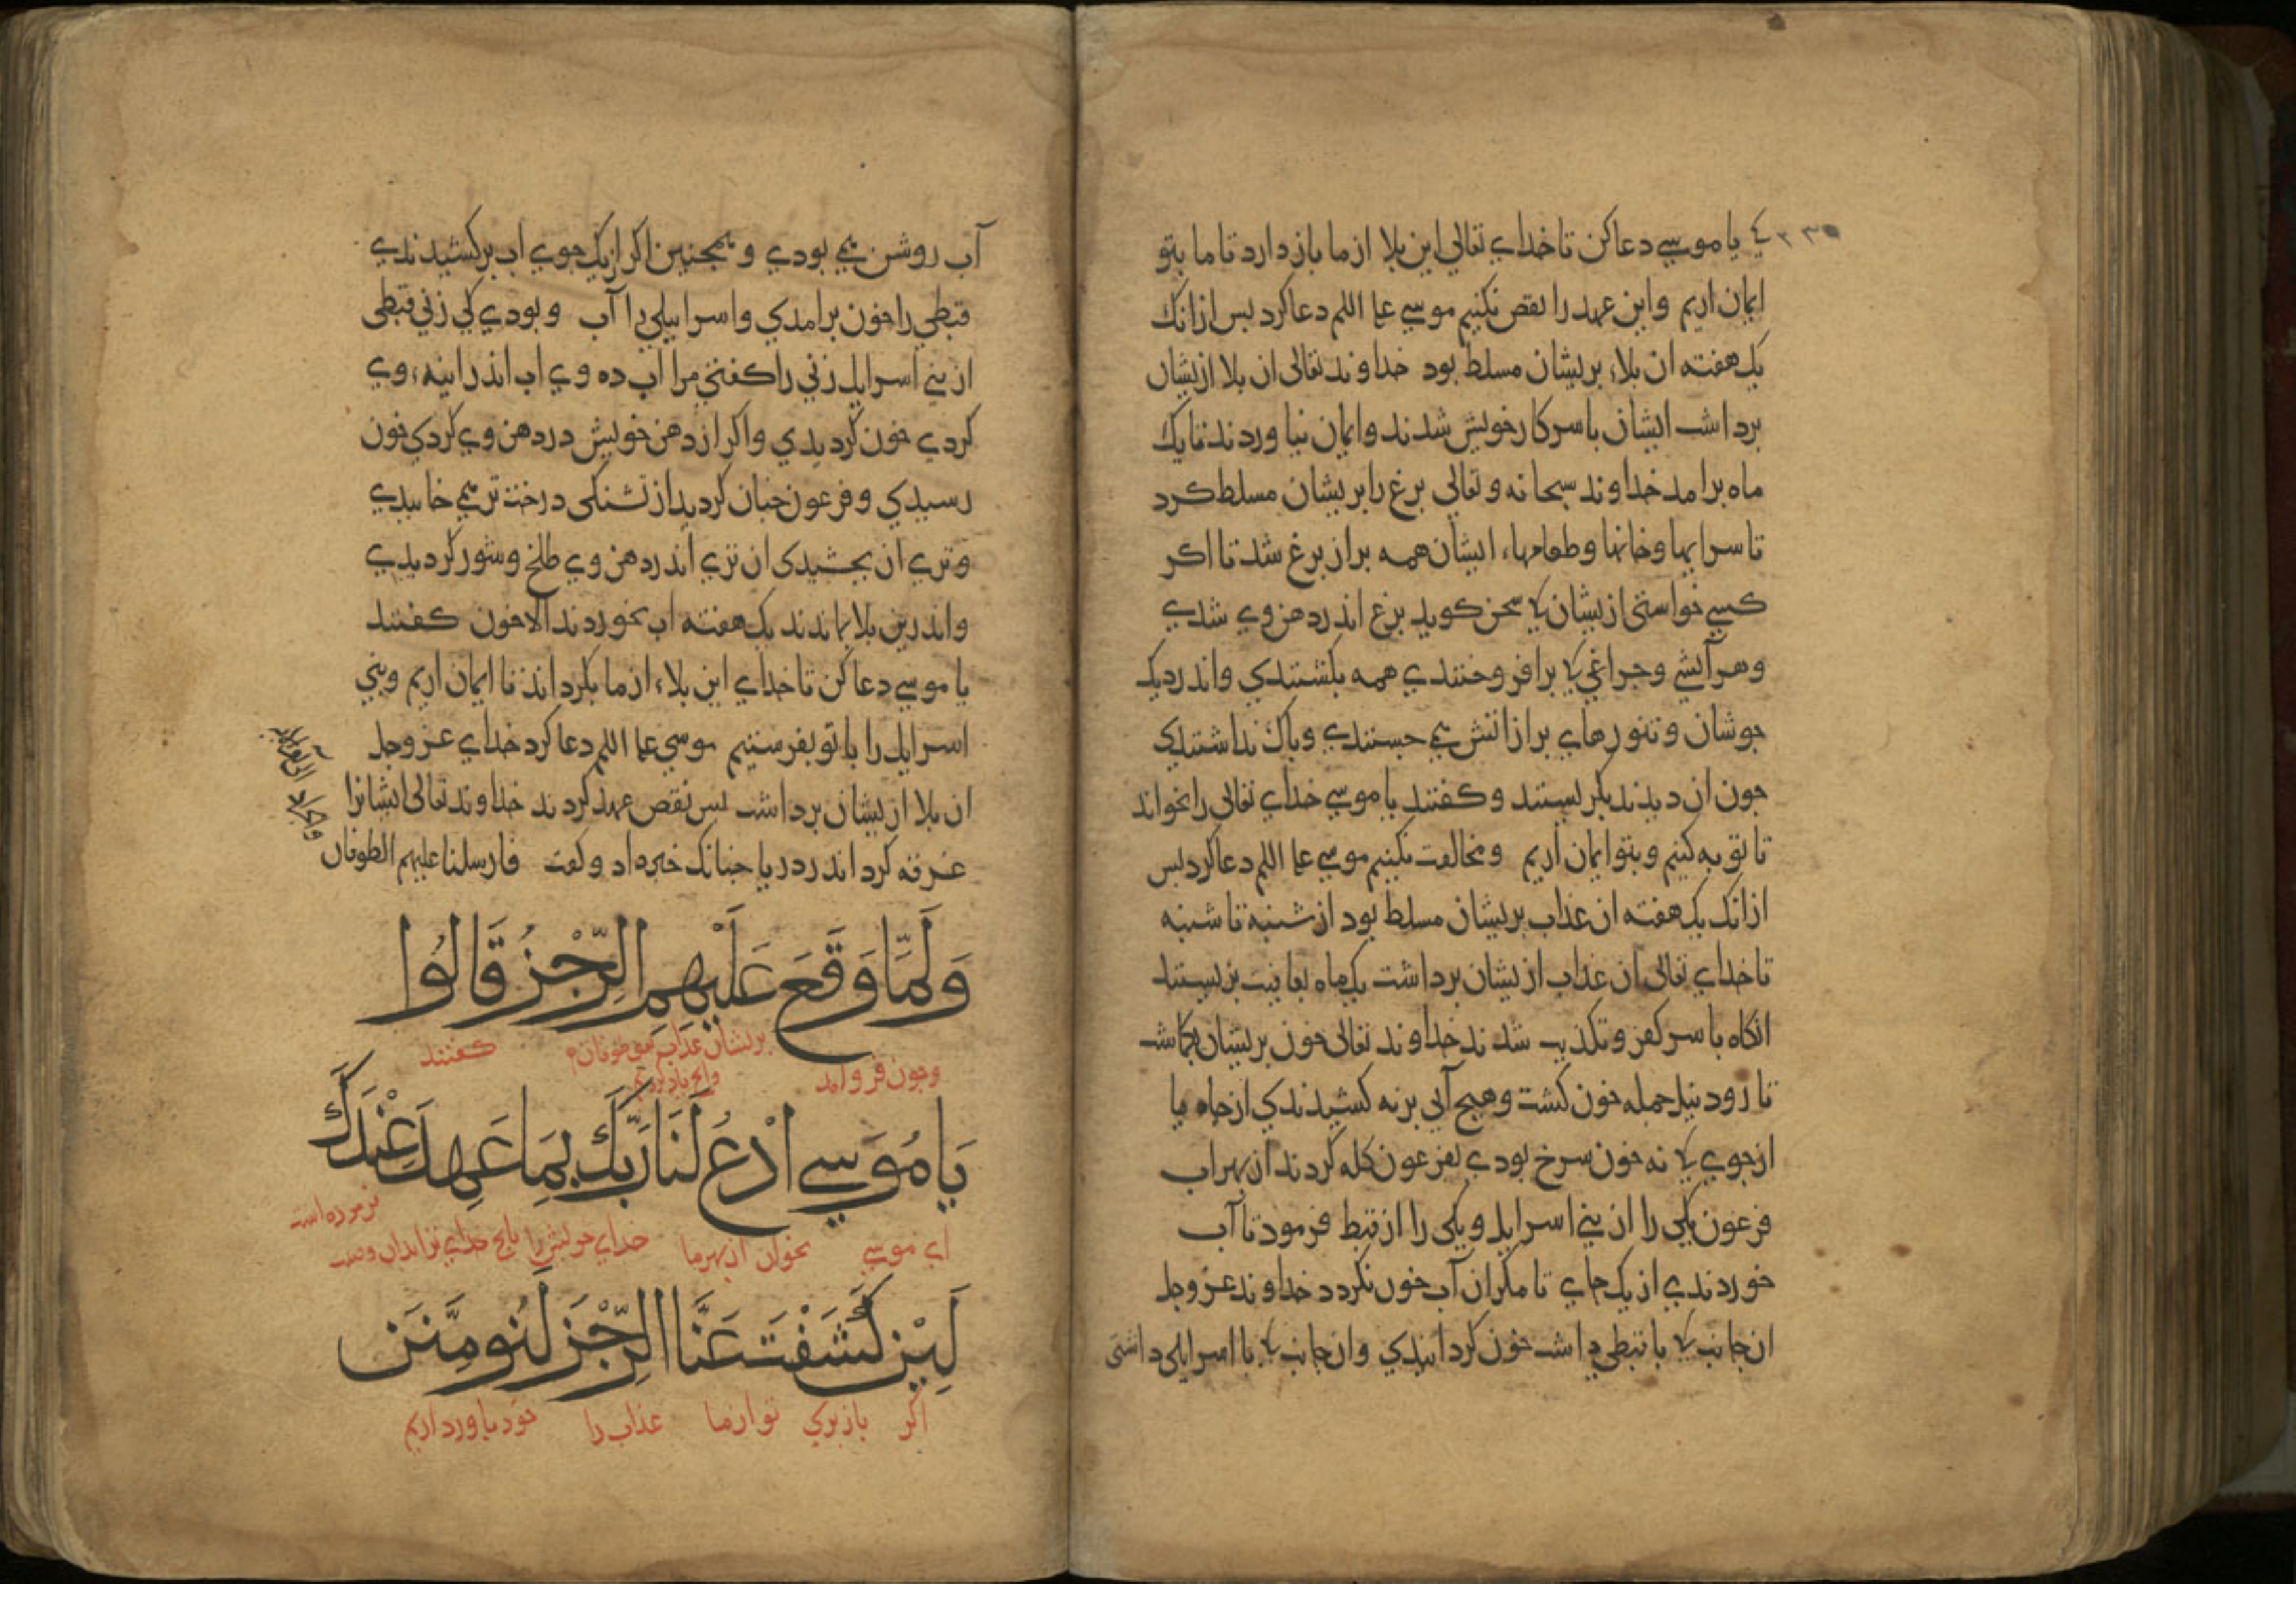 ٤ ٢٣٥
یا موسی دعا کن تا خدای تعالی این بلا از ما باز دارد تا ما بتو
ایمان اریم و این عهد را نقض نکنیم موسی علیه السلم دعا کرد بس ازانک
یک هفته ان بلاء بریشان مسلط بود خداوند تعالی ان بلا ازیشان
برداشت ایشان با سر کار خویش شدند و ایمان نیاوردند تا یک
ماه برامد خداوند سبحانه و تعالی بزغ را بریشان مسلط کرد
تا سرایها و خانها و طعامهاء ایشان همه بر از بزغ شد تا اکر
کسی خواستی ازیشان کی سخن کوید بزغ اندر دهن وی شدی
و هر آتشی و جراغی کی برافروختندی همه بکشتندی و اندر دیک
جوشان و تنورهای بر از اتش می جستندی و باک نداشتندی
جون ان دیدند بکریستند و کفتند یا موسی خدای تعالی را بخوان
تا توبه کنیم و بتو ایمان اریم و مخالفت نکنیم موسی علیه السلم دعا کرد بس
ازانک یک هفته ان عذاب بریشان مسلط بود از شنبه تا شنبه
تا خدای تعالی ان عذاب ازیشان برداشت یک ماه بعافیت بزیستند
انکاه با سر کفر و تکذیب شدند خداوند تعالی خون بریشان بکماشت
تا رود نیل جمله خون کشت و هیج آبی بر نه کشیدندی از جاه یا
از جوی کی نه خون سرخ بودی بفرعون کله کردند از بهر اب
فرعون یکی را از بنی اسرایل و یکی را از قبط فرمود تا آب
خوردندی از یک جای تا مکر ان آب خون نکردد خداوند عز وجل
ان جانب کی با قبطی داشت خون کردانیدی و ان جانب کی با اسرایلی داشتی
آب روشن می بودی و همجنین اکر از یک جوی اب برکشیدندی
قبطی را خون برامدی و اسراییلی را آب و بودی کی زنی قبطی
از بنی اسرایل زنی را کفتی مرا اب ده وی اب اندر انیهء وی
کردی خون کردیدی و اکر از دهن خویش در دهن وی کردی خون
رسیدی و فرعون جنان کردید از تشنکی درخت تر می خاییدی
و تری ان بجشیدی ان تری اندر دهن وی طلخ و شور کردیدی
و اندرین بلا بماندند یک هفته اب نخوردند الا خون کفتند
یا موسی دعا کن تا خدای این بلاء از ما بکرداند تا ایمان اریم و بنی
اسرایل را با تو بفرستیم موسی علیه السلم دعا کرد خدای عز وجل
ان بلا ازیشان برداشت بس نقض عهد کردند خداوند تعالی ایشانرا
غرقه کرد اندر دریا جنانک خبر داد و کفت فارسلنا علیهم الطوفان
وَلَمَّا وَقَعَ عَلَيْهِمُ الرِّجْزُ قَالُوا
و جون فرو امد بریشان عذاب کفتند
يَا مُوسَى ادْعُ لَنَا رَبَّكَ بِمَا عَهِدَ عِنْدَكَ
ای موسی بخوان از بهر ما خدای خویش را
فرموده است
لَئِنْ كَشَفْتَ عَنَّا الرِّجْزَ لَنُومِنَنَّ
اکر باز بری تو از ما عذاب را خود باور داریم